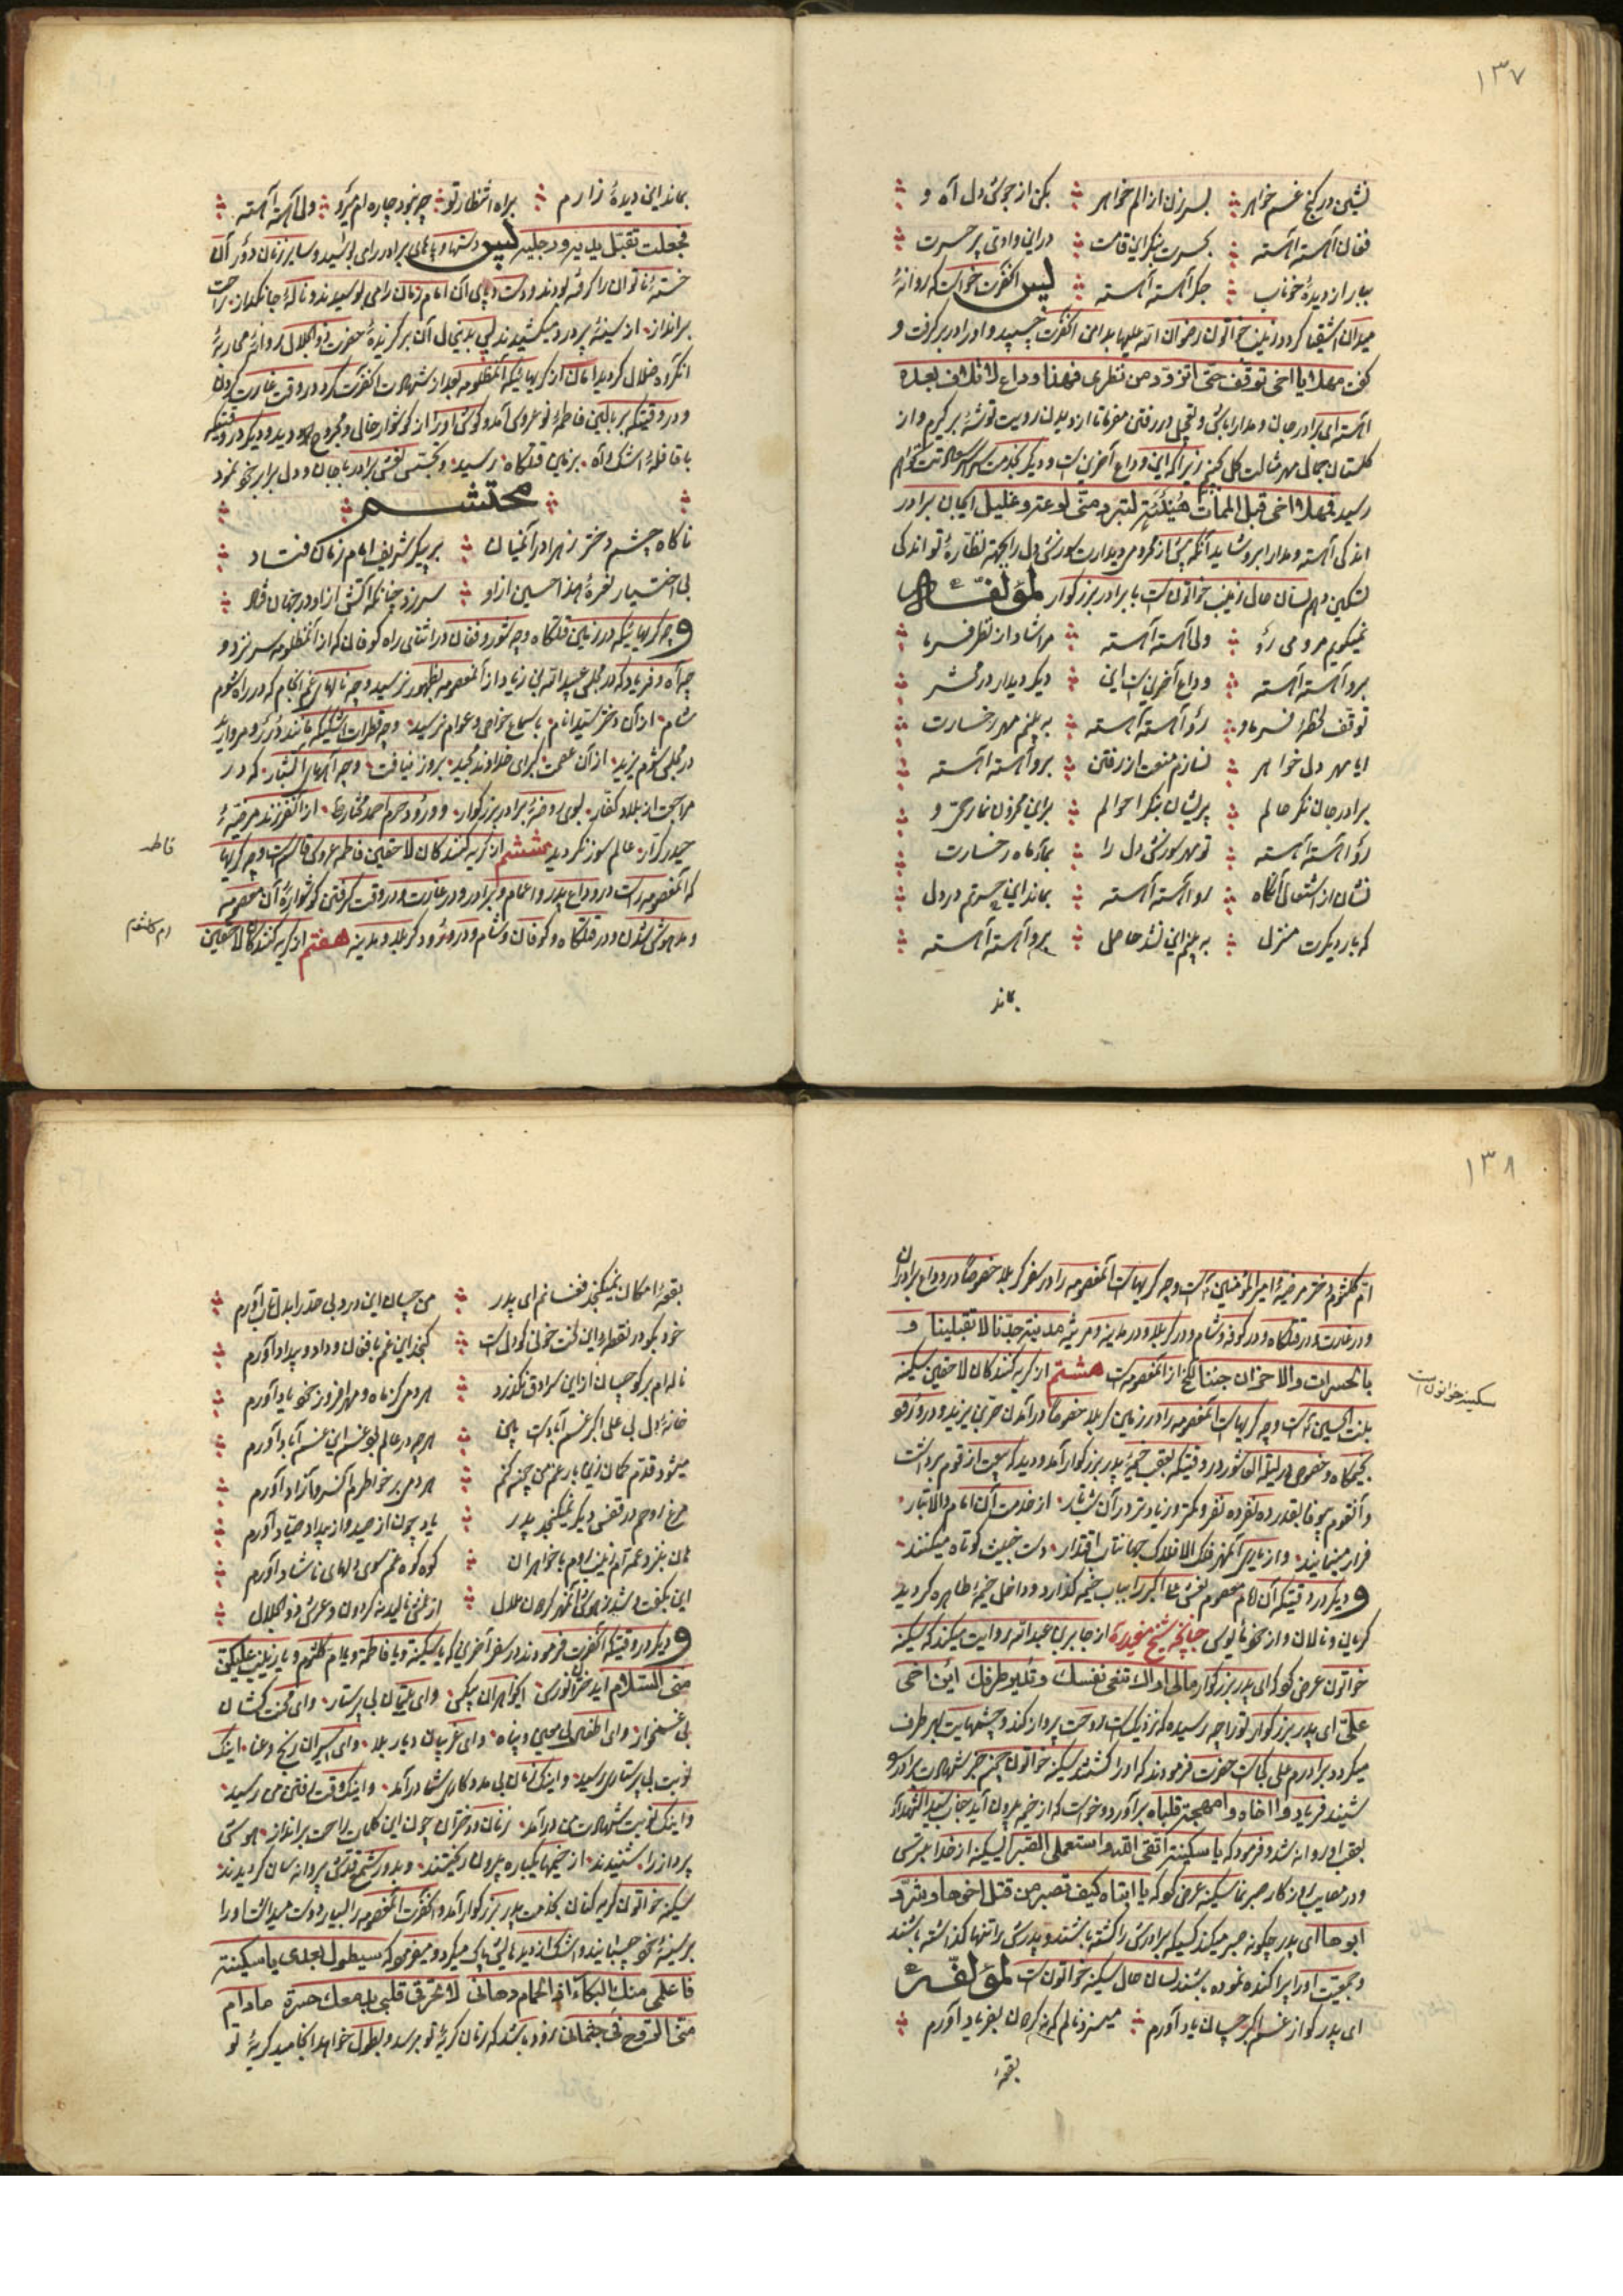 ۱۳۷
نشین در کنج غم خواهر بسر زن از الم خواهر بکن از جوش دل آه و
فغان آهسته آهسته بحسرت بنگر این قامت در این وادی پر حسرت
ببار از دیدهٔ خوناب جگر آهسته آهسته پس آنحضرت خواست که روانهٔ
میدان اشقیا گردد زینب خواتون رضوان الله علیها بدامن آنحضرت چسپید و او را در بر گرفت و
گفت مهلا یا اخی توقف حتی اتزود من نظری فهذا وداع لا تلاق بعده
آهسته ای برادر جان و مدارا باش و تعجیل در رفتن مفرما تا از دیدن رویت توشهٔ بر گیرم و از
گلستان جمال مهر مثالت گل چینم زیرا که این وداع آخرین است و دیگر بخدمت
رسید فمهلا اخی قبل الممات هنیئة لتبرد منی لوعة و غلیل ایجان برادر
اندکی آهسته و مدارا برو شاید آنکه پیش از محرومی دیدارت سوزش دل را بجهة نظارهٔ تو اندکی
تسکین دهم لسان حال زینب خواتون است با برادر بزرگوار لمؤلفه
نمیگویم مرو می رو ولی آهسته آهسته مرا شاد از نظر فرما
برو آهسته آهسته وداع آخرین است این دیگر دیدار در محشر
توقف لحظهٔ فرما و رو آهسته آهسته به بینم مهر رخسارت
ایا مهر دل خواهر نسازم منعت از رفتن برو آهسته آهسته
برادر جان نگر حالم پریشان بنگر احوالم براین محزون نما رحمی و
رو آهسته آهسته تو مهر سوزش دل را بماه رخسارت
نشان از اشتعال آنگاه رو آهسته آهسته بماند این حسرتم در دل
که بار دیگرت منزل به بینم این نشد حاصل برو آهسته آهسته
بماند
بماند این دیدهٔ زارم براه انتظار تو چه نبود چاره ام میرو ولی آهسته آهسته
فجعلت تقبل یدیه و رجلیه پس دستها و پاهای برادر را می بوسید و سایر زنان دور آن
خستهٔ ناتوان را گرفته بودند و دست و پای آن امام زمان را می بوسیدند و نالهٔ جانگداز راحت
برانداز از سینهٔ پر درد میکشیدند پس بدنبال آن برگزیدهٔ حضرت ذو الجلال روانهٔ محاربهٔ
آنگروه ضلال گردید امان از گریهائیکه آنمظلومه بعد از شهادت آنحضرت کرد در وقت غارت کردن
و در وقتیکه بر بالین فاطمهٔ نو عروس آمد و گوش او را از گوشوار خالی و مجروح دید و دیگر در وقتیکه
با قافلهٔ اشک و آه بزمین قتلگاه رسید و بجستن نعش برادر با جان و دل برابر خود نمود
محتشم
ناگاه چشم دختر زهرا در آنمیان بر پیکر شریف امام زمان فتاد
بی اختیار نعرهٔ هذا حسین از او سرزد چنانکه آتش از او در جهان فتاد
و چه گریهائیکه در زمین قتلگاه و چه شور و فغان در اثنای راه کوفان که از آنمظلومه سر نزد و
چه آه و فریاد که در مجلس عبید الله بن زیاد از آنمعصومه بظهور نرسید و چه نالهای غم انجام که در راه شوم
شام از آن دختر سید انام باسماع خواص و عوام نرسید و چه قطرات اشکیکه مانند در و مروارید
در مجلس شوم یزید از آن عصمت کبرای خداوند مجید بروز نیافت و چه آههای آتشبار که در
مراجعت از بلاد کفار بسوی روضهٔ برادر بزرگوار و ورود حرم احمد مختار از آنفرزند مرضیهٔ
حیدر کرار عالم سوز نگردید ششم از گریه کنندگان لاحقین فاطمه عروس قاسم است و چه گریها
فاطمه
که آنمعصومه راست در وداع پدر و اعمام و برادر و در غارت و در وقت گرفتن گوشوارهٔ آن معصومه
و مدهوش شدن و در قتلگاه و کوفان و شام و در ورود کربلا و مدینه هفتم از گریه کنندگان لاحقین
ام کلثوم
۱۳۸
ام کلثوم دختر مرضیهٔ امیر المؤمنین است و چه گریهاست آنمعصومه را در سفر کربلا خصوصا در وداع برادران
و در غارت و در قتلگاه و در کوفه و شام و در کربلا و در مدینه و مرثیه مدینة جدنا لا تقبلینا
بالحسرات و الاحزان جئنا الخ از آنمعصومه است هشتم از گریه کنندگان لاحقین سکینه
سکینه خواتون است
بنت الحسین است و چه گریهاست آنمعصومه را در زمین کربلا خصوصا در آمدن حر بن یزید و در ورود
بخیمگاه و خصوص در لیلة العاشور در وقتیکه بعقب خیمهٔ پدر بزرگوار آمد و دید که بیعت از قوم برداشت
و آنقوم بیوفا بقدر ده نفر ده نفر و کمتر و زیادتر در آن شب تار از خدمت آن امام والا تبار
فرار مینمایند و از یاری آنمهر فلک الافلاک جهانتاب اقتدار دست خبیث کوتاه میکنند
و دیگر در وقتیکه آن امام معصوم نعش علی اکبر را بباب خیمه گذارد و داخل خیمهٔ طاهره گردید
گریان و نالان و از خود مایوس چنانچه شیخ مفیده از جابر بن عبد الله روایت میکند که سکینه
خواتون عرض کرد که ای پدر بزرگوار مالی اراک تنعی نفسک و تدیر طرفک این اخی
علی ای پدر بزرگوار تو را چه رسیده که نزدیکست روحت پرواز کند و چشمهایت بهر طرف
میگردد برادرم علی کجاست حضرت فرمودند که او را کشتند سکینه خواتون چون خبر شهادت برادر
شنید فریاد وا اخاه وا مهجة قلباه برآورد و خواست که از خیمه بیرون آید جناب سید الشهدا
بعقب او روانه شد و فرمود که یا سکینة اتقی الله و استعملی الصبر ایسکینه از خدا بترس
و در مصایب روزگار صبر نما سکینه عرض کرد که یا ابتاه کیف تصبر من قتل اخوها و شرد
ابوها ای پدر چگونه صبر میکند کسیکه برادرش را کشته باشند و پدرش را تنها گذاشته باشند
و جمعیت او را پراکنده نموده باشند لسان حال سکینه خواتون است لمؤلفه
ای پدر کو از غم اکبر چسان یاد آورم میسزد نالم که نه گردون بفریاد آورم
بقعهٔ
بقعهٔ امکان نمیگنجد فغانم ای پدر من چسان این درد بی حد را بدل تاب آورم
خود بگو در نقطهٔ دل این خون که دل است گنجد این غم با فغان و داد و بیداد آورم
ناله ام بر گو چسان از این سرادق نگذرد هر دمی کز ماه و مهر افروز خود یاد آورم
خانهٔ دل بی علی اکبر غم آبادست هر چه در عالم بود غم این غم آباد آورم
میشود قدم کمان زین بار غم من چون کنم هر دمی بر خاطرم آن سرو آزاد آورم
مرغ روحم در قفس دیگر نمیگنجد پدر یاد چون از صید و از بیداد صیاد آورم
کوه کوه غم سوی دلهای ناشاد آورم
این بگفت و شد ز هوش آنمهر گردون جلال از غمش نالید نه گردون و عرش ذو الجلال
و دیگر در وقتیکه آنحضرت فرمودند در سفر آخرین که یا سکینة و یا فاطمة و یا ام کلثوم و یا زینب علیکن
منی السلام ای دختران نورس ایخواهران بیکس و ای علیلان بی پرستار و ای محنت کشان
بی غمخوار و ای اطفال بی معین و پناه و ای غریبان دیار بلا و ای اسیران رنج و عنا اینک
نوبت بی پرستاری رسید و اینک زمان بی مددکاری شما در آمد و اینک وقت رفتن من رسید
و اینک نوبت شهادت من در آمد زنان و دختران چون این کلمات راحت برانداز هوش
پرداز را شنیدند از خیمها یکباره بیرون ریختند و بدور شمع قدش پروانه سان گردیدند
سکینه خواتون گریه کنان بخدمت پدر بزرگوار آمد و آنحضرت آنمعصومه را بسیار دوست میداشت او را
بر سینهٔ خود چسپانید و اشک از دیدهایش پاک میکرد و میفرمود که سیطول بعدی یا سکینة
فاعلمی منک البکاء اذ الحمام دهانی لا تحرقی قلبی بدمعک حسرة مادام
منی الروح فی جثمانی زود باشد که زمان گریهٔ تو برسد و بطول خواهد انجامید گریهٔ تو